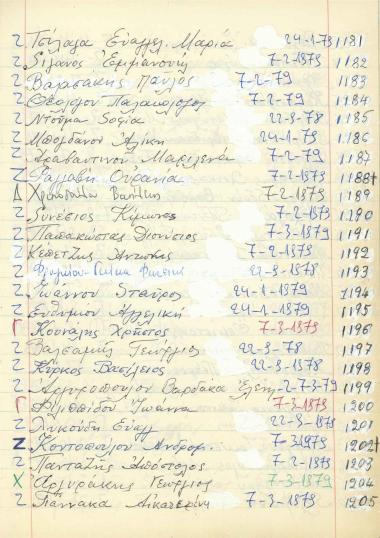 Ζ Τσίλαγα Ευαγγελ. Μαρία 24-1-79 1181
Ζ Σιγανός Εμμανουήλ 7-2-1979 1182
Ζ Βαλασάκης Παύλος 7-2-79 1183
Ζ Θεολόγου Παλαιολόγος 7-2-79 1184
Ζ Ντούμα Σοφία 22-9-78 1185
Ζ Μπογδάνου Αλίκη 24-1-79 1186
Ζ Αραβαντινού Μαριλένα 7-2-79 1187
Ζ Ραγγαβή Ουρανία 7-2-1979 1188†
Δ Βασίλης 7-2-1979 1189
Ζ Συνέσιος Κίμωνος 7-2-1979 1190
Ζ Παπακώστας Διονύσιος 7-3-1979 1191
Ζ Κεπετζής Αντώνιος 7-2-1979 1192
Ζ 22-9-1978 1193
Ζ Ιωάννου Σταύρος 24-1-1979 1194
Ζ Ευθυμίου Αγγελική 24-1-1979 1195
Γ Κουνάλης Χρήστος 7-3-1979 1196
Ζ Βαλσαμής Γεώργιος 22-9-78 1197
Ζ Κύρκος Βασίλειος 22-9-1978 1198
Ζ Αργυροπούλου Βαρδάκα Ελένη 7-3-79 1199
Γ Φιλιππίδου Ιωάννα 7-3-1979 1200
Ζ Λυκούδη Ευαγ 22-9-1979 1201
Ζ Κοντοπούλου Ανδρομ. 7-3-1979 1202†
Ζ Πανταζής Απόστολος 7-2-1979 1203
Χ Αργυράκης Γεώργιος 7-3-1979 1204
Ζ Γιάννακα Αικατερίνη 7-3-1979 1205